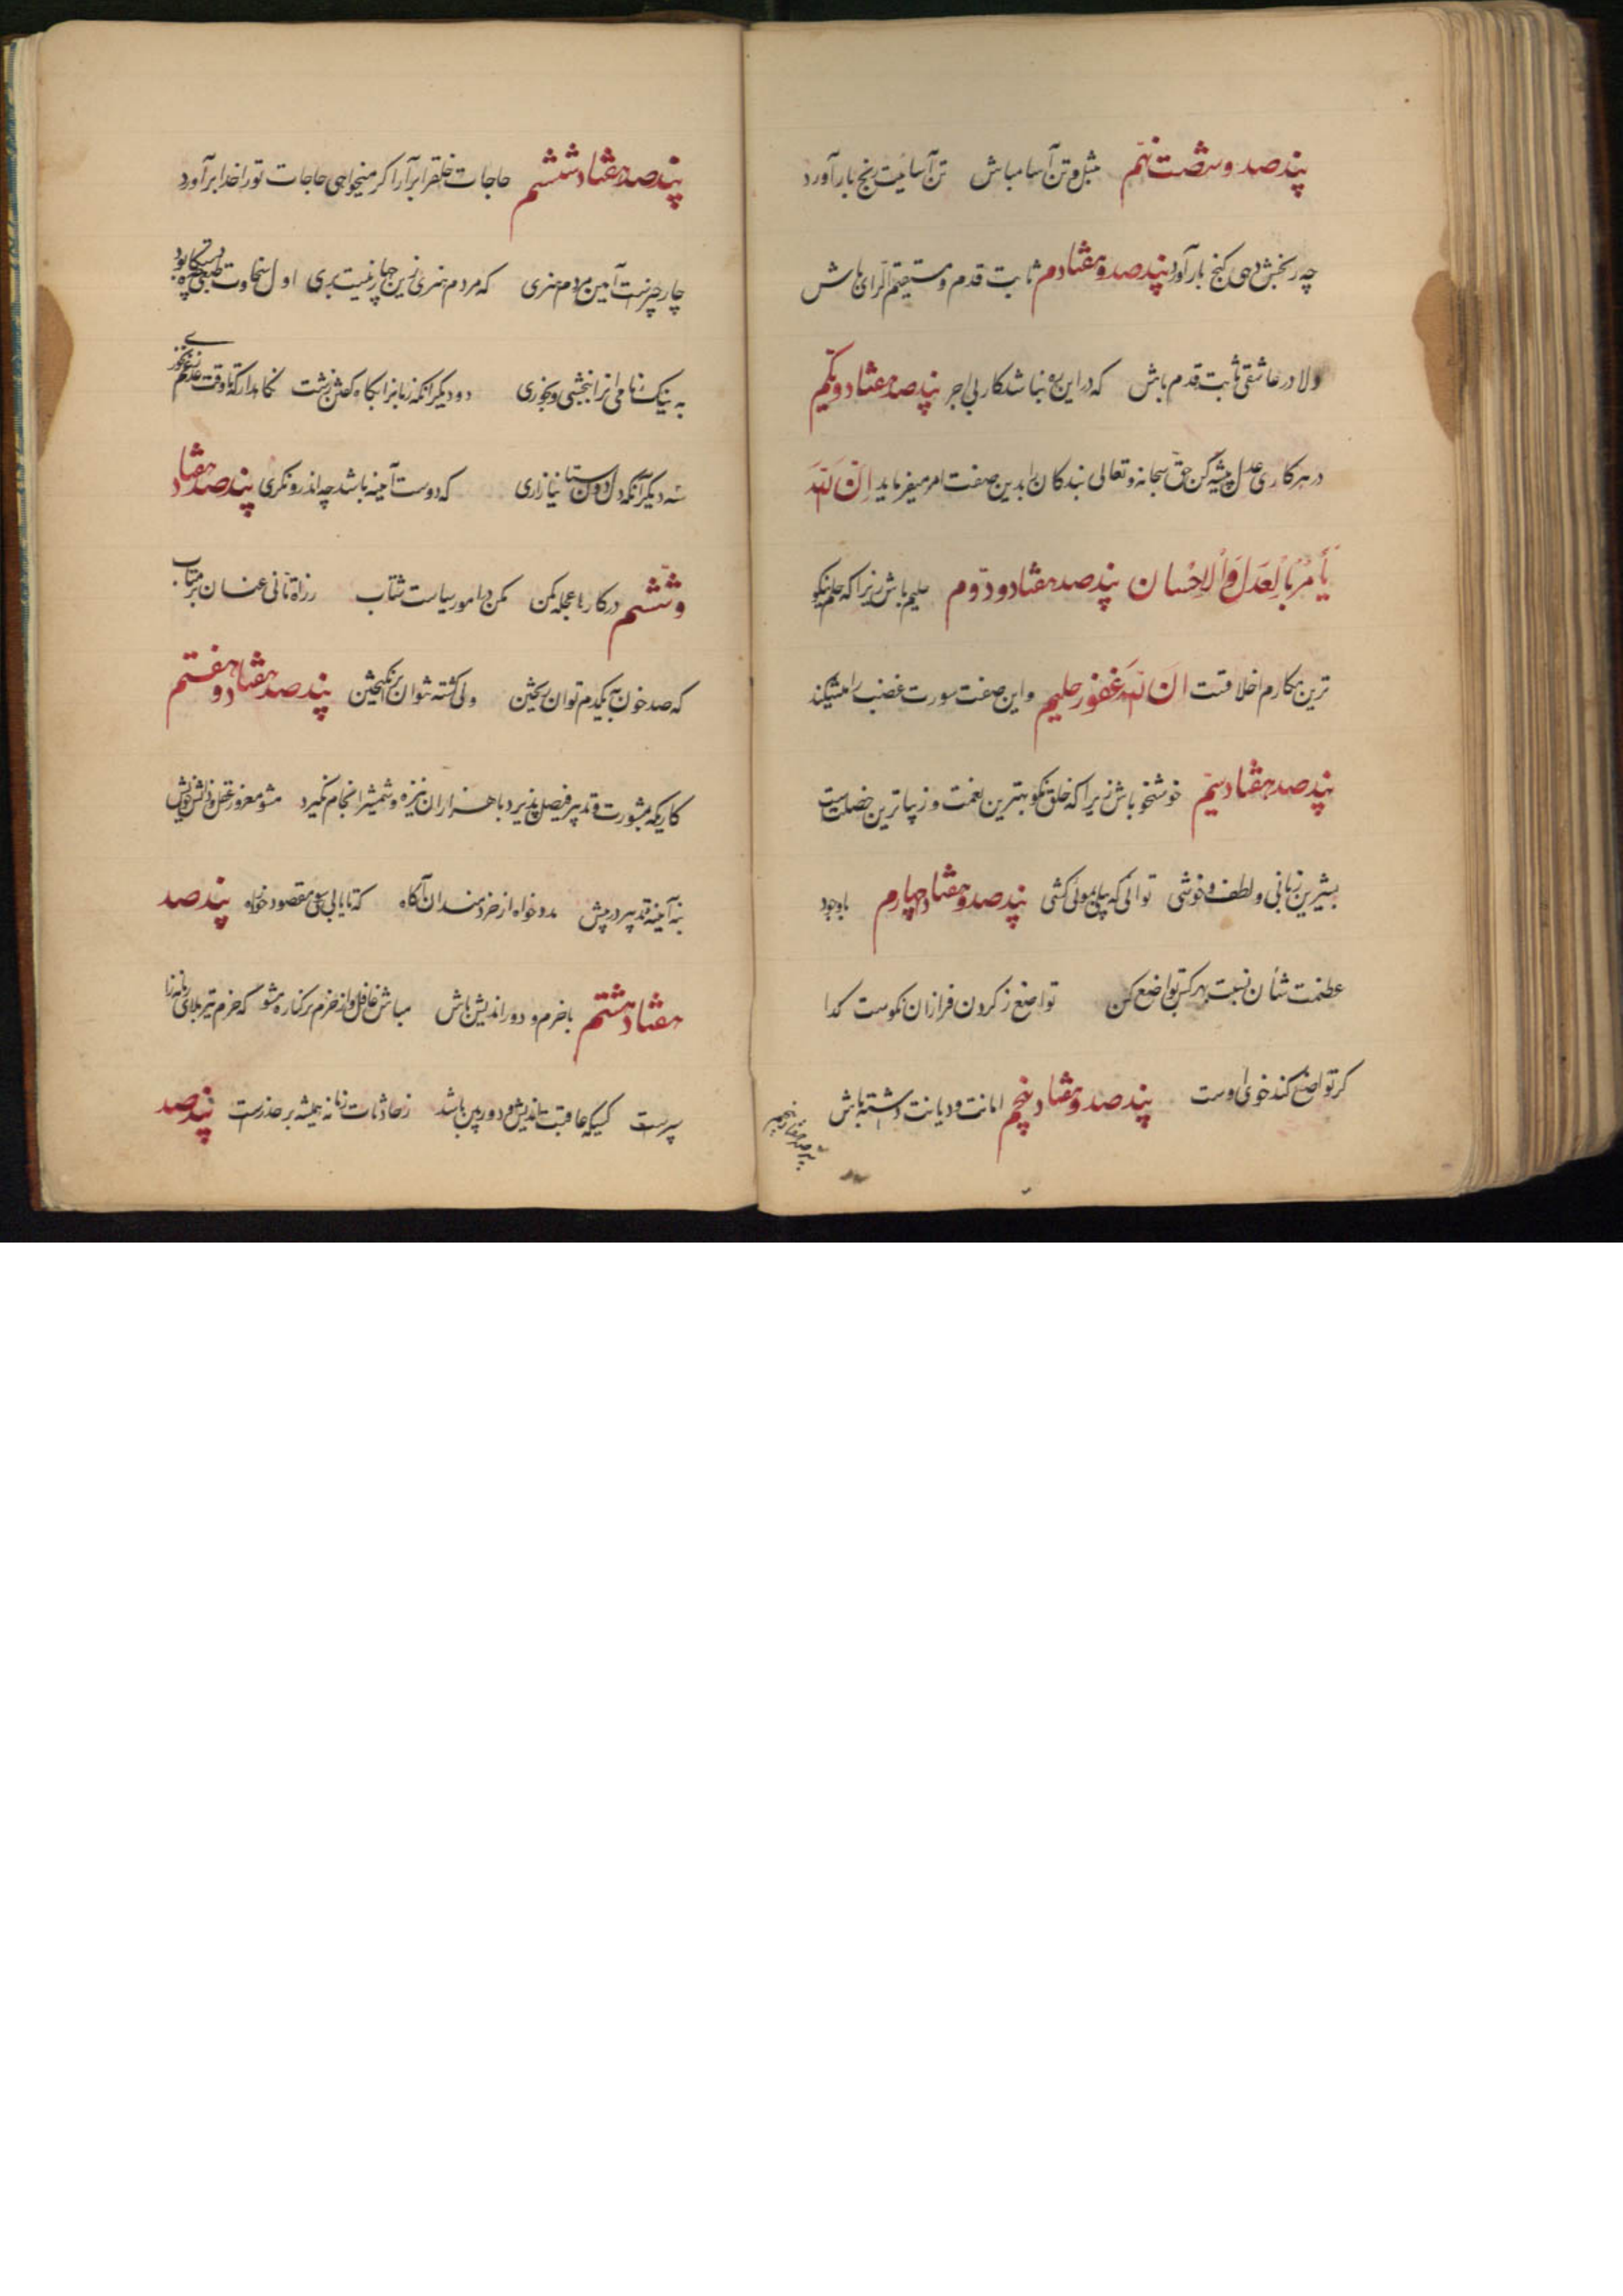 پند صد و شصت نهم مثل و تن آسا مباش تن آسائیت رنج بار آورد
چه رنجش دهی گنج بار آورد پند صد و هفتادم ثابت قدم و مستقیم الرای باش
دلا در عاشقی ثابت قدم باش که در این ره نباشد کار بی اجر پند صد هفتاد و یکم
در هر کاری عدل پیشه کن حق سبحانه و تعالی بندگان را بدین صفت امر میفرماید ان الله
یأمر بالعدل والاحسان پند صد هفتاد و دوم حلیم باش زیرا که حلم نیکو
ترین مکارم اخلاقست ان الله غفور حلیم و این صفت سورت غضب را میشکند
پند صد هفتاد سیم خوشخو باش زیرا که خلق نکو بهترین نعمت و زیباترین خصلت است
بشیرین زبانی و لطف و خوشی توانی که پیلی بموئی کشی پند صد و هفتاد چهارم با وجود
عظمت شأن نسبت بهر کس تواضع کن تواضع ز گردن فرازان نکوست گدا
گر تواضع کند خوی اوست پند صد و هفتاد پنجم امانت و دیانت داشته باش
پند صد هفتاد پنجم
پند صد هفتاد ششم حاجات خلق را برآر اگر میخواهی حاجات تو را خدا برآورد
چار چیزست آیین مردم هنری که مردم هنری زین چهار نیست بری اول سخاوت طبعی چو دستگاه بود
به نیک نامی آنرا ببخشی و بخوری دو دیگر آنکه زبان را بگاه گفتن زشت نگاه دار که تا وقت عذر غم نخوری
سه دیگر آنکه دل دوستان نیازاری که دوست آینه باشد چو اندرو نگری پند صد هفتاد
و ششم در کارها عجله مکن مکن در امور سیاست شتاب ز راه تأنی عنان برمتاب
که صد خون بیکدم توان ریختن ولی کشته نتوان برانگیختن پند صد هفتاد و هفتم
کاریکه بمشورت و تدبیر فیصل پذیرد با هزاران نیزه و شمشیر انجام نگیرد مشو مغرور عقل و دانش خویش
بنه آیینه تدبیر در پیش مدد خواه از خردمندان آگاه که تا یابی بسوی مقصود خود راه پند صد
هفتاد هشتم با حزم و دوراندیش باش مباش غافل و از حزم بر کناره مشو که حزم تیر بلای زمانه را
سپرست کسیکه عاقبت اندیش و دوربین باشد ز حادثات زمانه همیشه بر حذرست پند صد